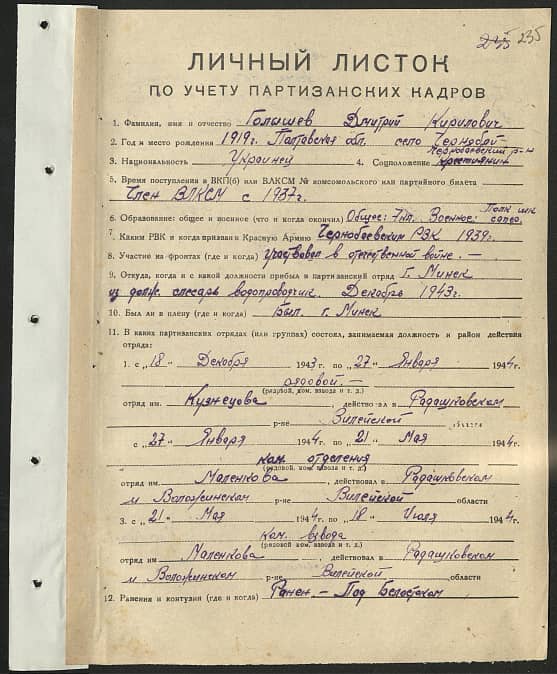 235 235
ЛИЧНЫЙ ЛИСТОК
ПО УЧЕТУ ПАРТИЗАНСКИХ КАДРОВ
1. Фамилия, имя и отчество Голышев Дмитрий Кирилович
2. Год и место рождения 1919г. Полтавская обл. село Чернобай-
Чернобаевский р-н
3. Национальность Украинец 4. Соцположение крестьянин
5. Время поступления в ВКП(б) или ВЛКСМ № комсомольского или партийного билета
Член ВЛКСМ с 1937г.
Полк шк
6. Образование: общее и военное (что и когда окончил) Общее: 7кл. Военное:
7. Каким РВК и когда призван в Красную Армию Чернобаевским РВК 1939г.
8. Участие на фронтах (где и когда) Участвовал в отечественной войне. —
9. Откуда, как и с какой должности прибыл в партизанский отряд г. Минск
из долж. слесарь водопроводчик. Декабрь 1943г.
10. Был ли в плену (где и когда) Был. г. Минск
11. В каких партизанских отрядах (или группах) состоял, занимаемая должность и район действия
отряда:
1. с „18" Декабря 1943 г. по „27" Января 1944г.
рядовой. —
(рядовой, ком. взвода и т. д.)
отряд им. Кузнецова действовал в Радашковском
р-не Вилейской
с „27" Января 1944г. по „21" Мая 1944г.
ком. отделения
(рядовой, ком. взвода и т. д.)
отряд им. Маленкова, действовал в Радашковском
и Воложинском р-не Вилейской области
3. с „21" Мая 1944г. по „18" Июля 1944г.
ком. взвода
(рядовой ком. взвода и т. д.)
отряд им Маленкова, действовал в Радашковском
и Воложинском р-не Вилейской области
12. Ранения и контузии (где и когда) Ранен — Под Белостоком